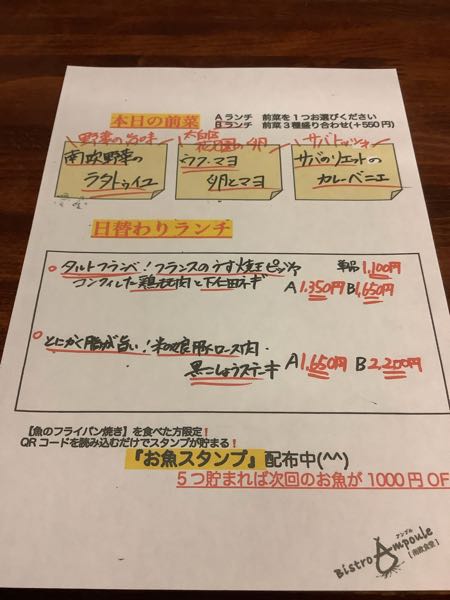 本日の前菜
Aランチ 前菜を1つお選びください
Bランチ 前菜3種盛り合わせ(+550円)
野菜の旨味
南欧野菜の
ラタトゥイユ
太白区
花兄園の卵
ウフ・マヨ
卵とマヨ
サバ
サバのリエットの
カレーベニエ
日替わりランチ
タルトフランベ!フランスのうす焼きピッツァ 単品1,100円
コンフィした鶏もも肉と下仁田ネギ A1,350円 B1,650円
とにかく脂が旨い!米の娘豚ロース肉
黒こしょうステーキ A1,650円 B2,200円
【魚のフライパン焼き】を食べた方限定!
QRコードを読み込むだけでスタンプが貯まる!
『お魚スタンプ』配布中(^^)
5つ貯まれば次回のお魚が1000円OF
アンプル
Bistro Ampoule
【南欧食堂】